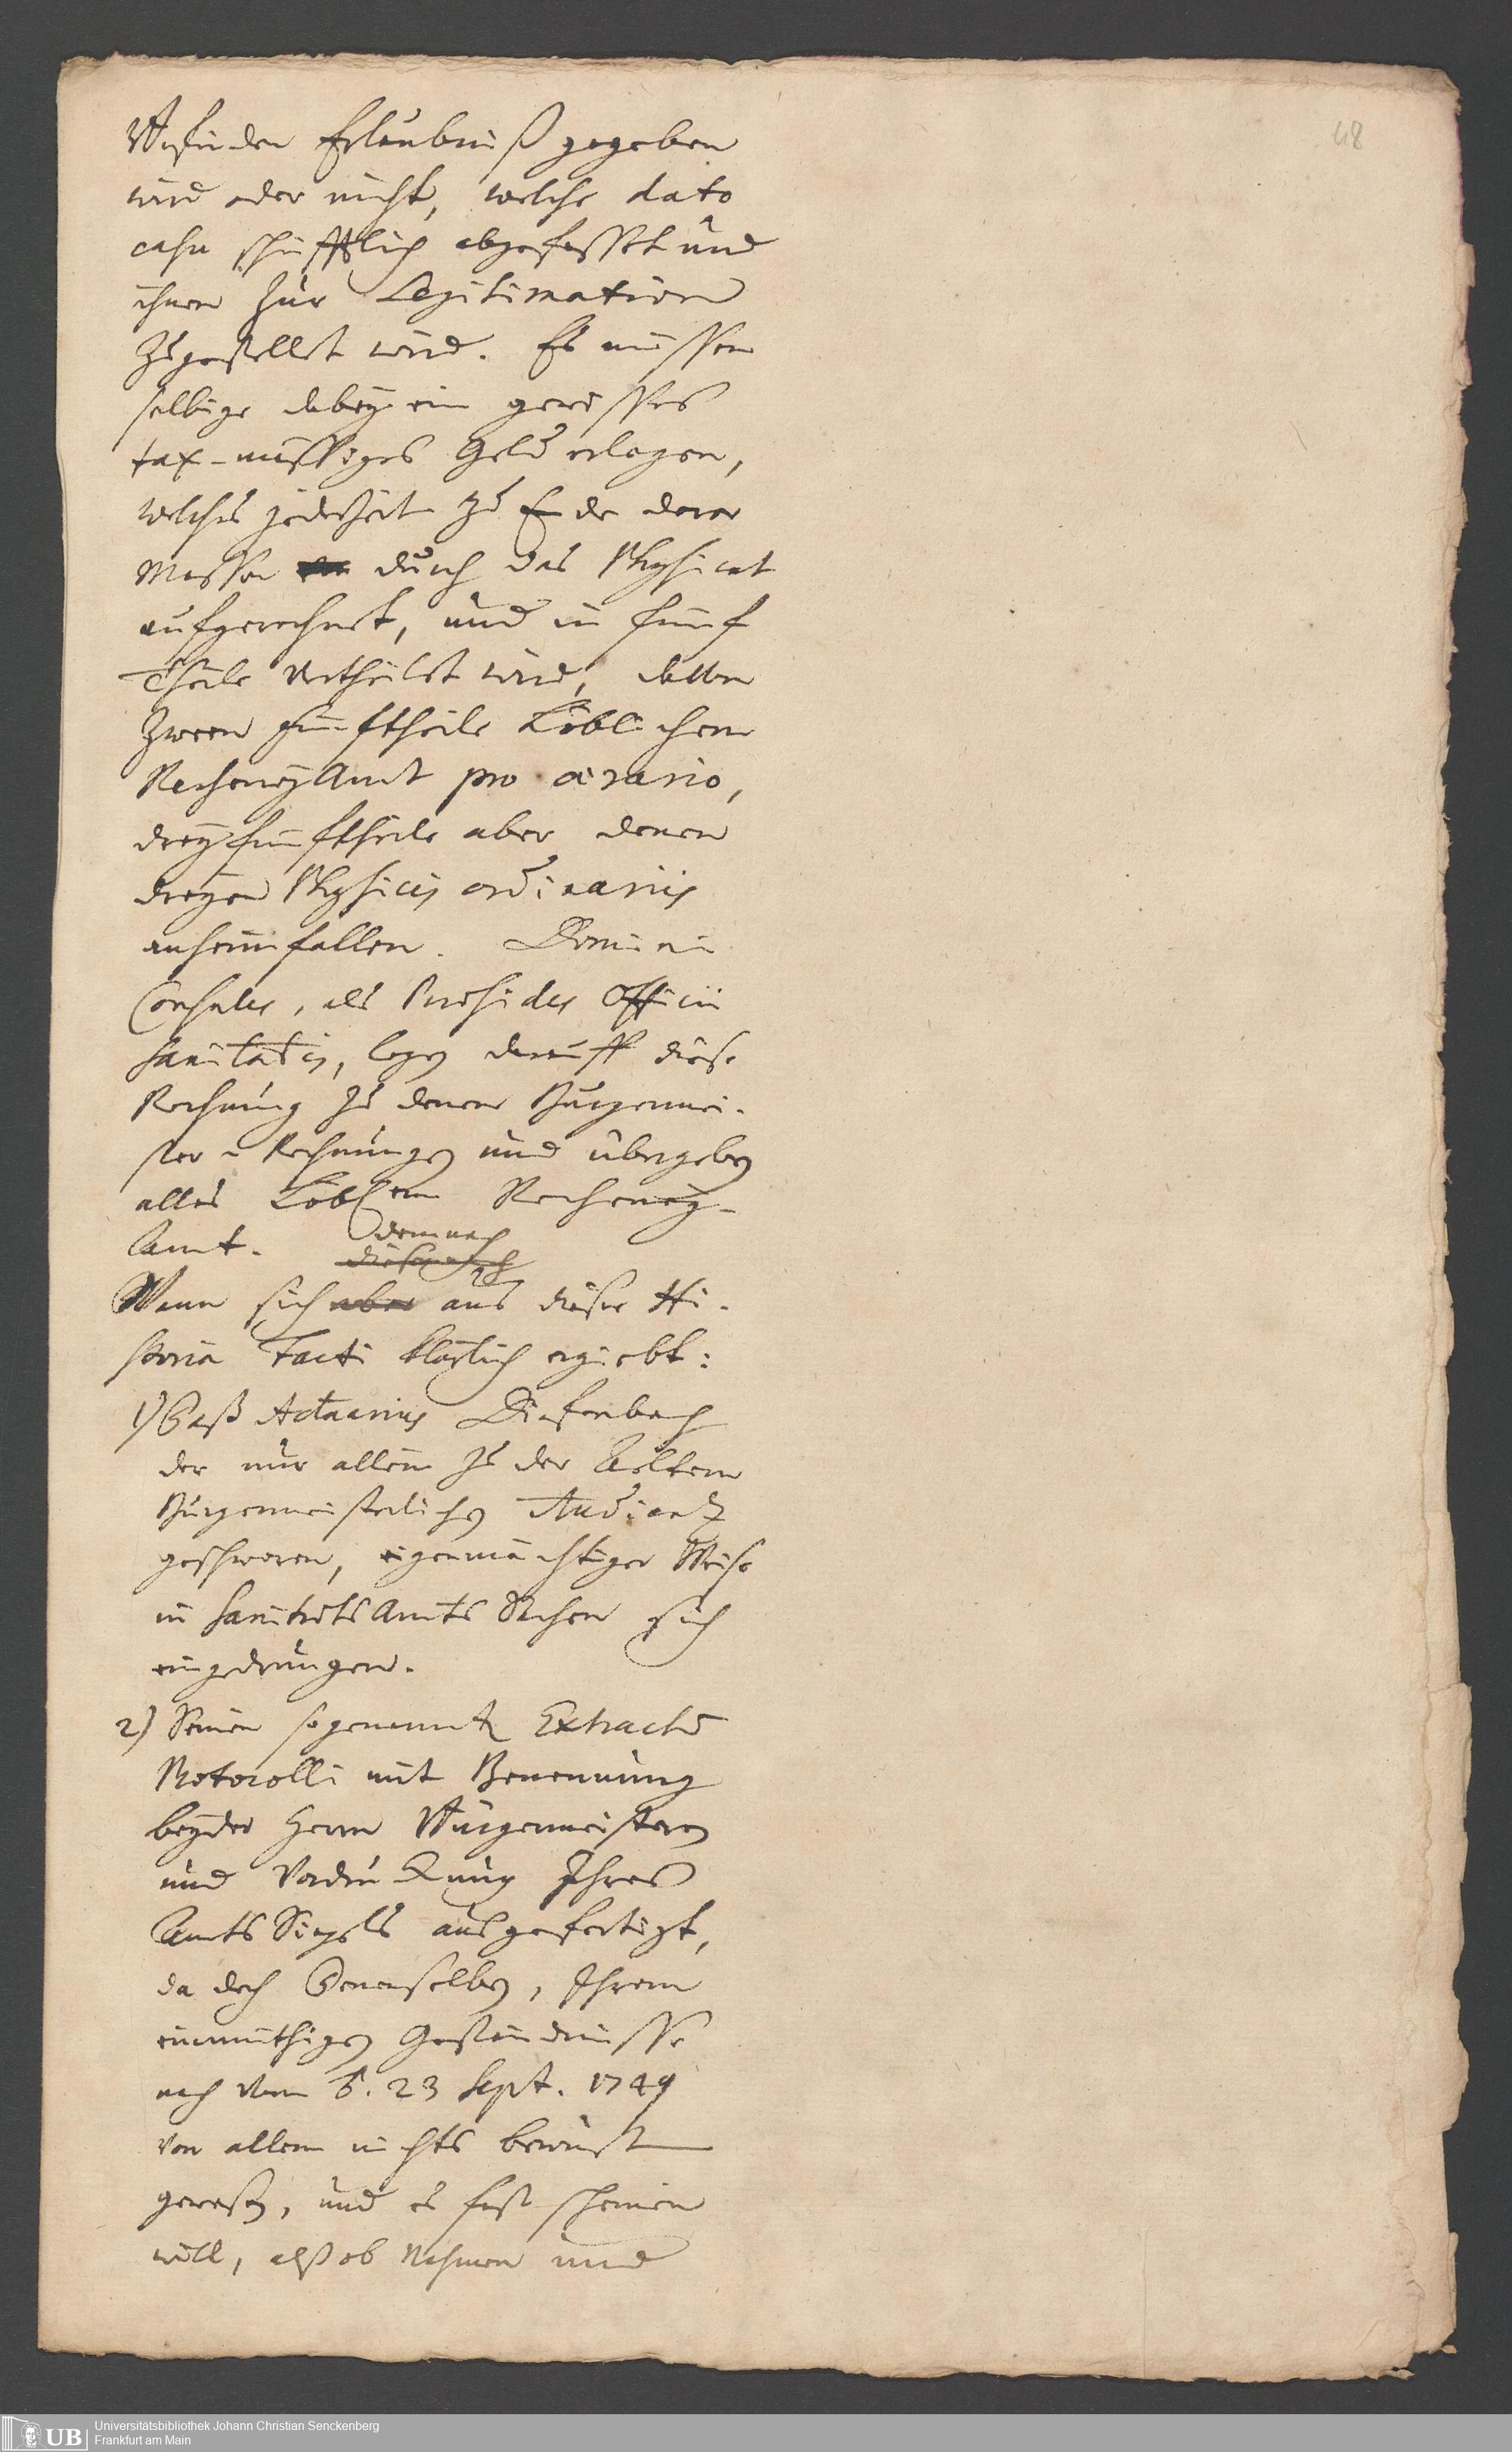 48
Befinden Erlaubniß gegeben
wird oder nicht, welche dato
casu schrifftlich abgefasset und
ihnen zur Legitimation
zugestellet wird. Es müssen
selbige dabey ein gewisses
tax-mässiges Geld erlegen,
welches jederzeit zu Ende derer
Messen durch das Physicat
aufgerechnet, und in fünf
Theile vertheilet wird, davon
zween fünftheile Löblichem
RecheneyAmt pro aerario,
drey fünftheile aber denen
dreyen Physicis ordinariis
anheimfallen. Domini
Consules, als Praesides Officii
Sanitatis, legen darauff diese
Rechnung zu denen Burgermei-
ster-Rechnungen und übergeben
alles Löbl.em Recheney-
Amt.
demnach
diesemnach
Wann sich aber aus dieser Hi-
storia Facti klärlich ergiebt:
1) Daß Actuarius Diefenbach
der nur allein zu der Aeltern
Burgermeisterlichen Audientz
geschworen, eigenmächtiger Weise
in SanitätsAmts Sachen sich
eingedrungen.
2) Seinen sogenannten Extractum
Protocolli mit Benennung
beyder Herrn Burgermeistern
und Vordruckung Ihres
Amts Siegels ausgefertigt,
da doch Denenselben, Ihrem
einmüthigen Geständnisse
nach vom d. 23 Sept. 1749
von allem nichts bewust
gewesen, und es fast scheinen
will, alß ob Nahmen und
Universitätsbibliothek Johann Christian Senckenberg
UB
Frankfurt am Main